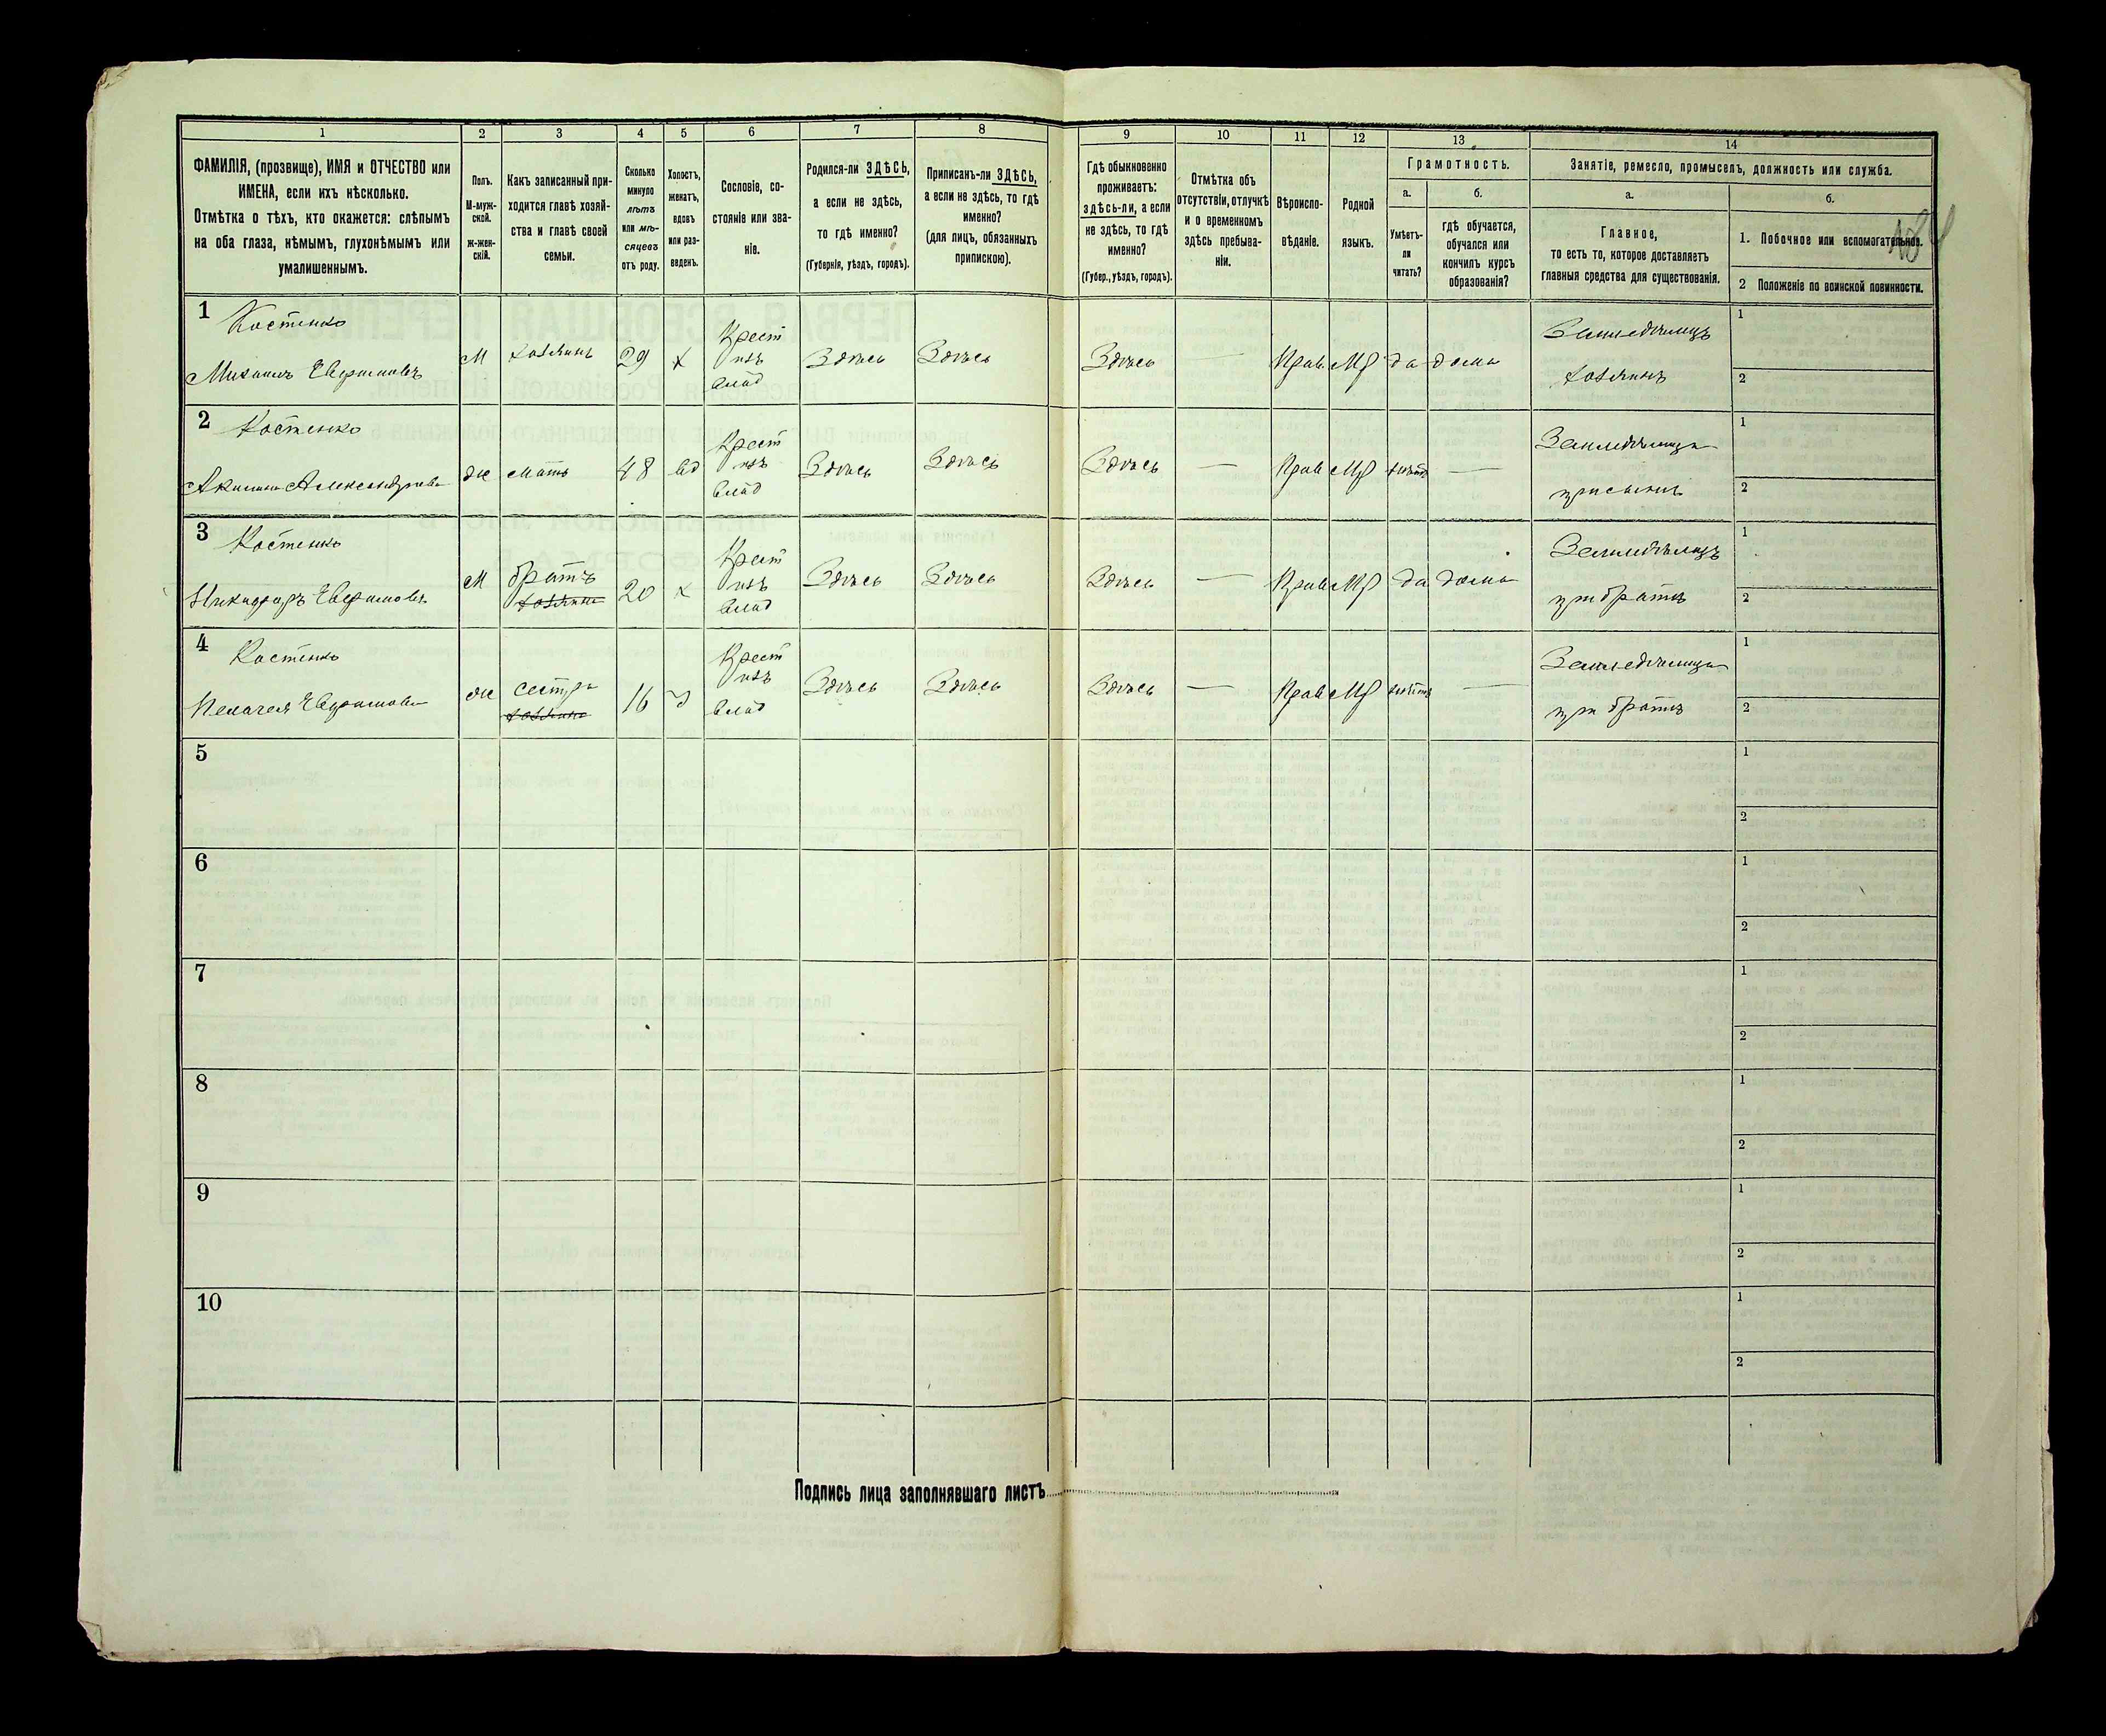 1 2 3 4 5 6 7 8 9 10 11 12 13 14
ФАМИЛІЯ, (прозвище), ИМЯ и ОТЧЕСТВО или
ИМЕНА, если ихъ нѣсколько.
Отмѣтка о тѣхъ, кто окажется: слѣпымъ
на оба глаза, нѣмымъ, глухонѣмымъ или
умалишеннымъ.
Полъ.
М-муж-
ской.
ж-жен-
скій.
Какъ записанный при-
ходится главѣ хозяй-
ства и главѣ своей
семьи.
Сколько
минуло
лѣтъ
или мѣ-
сяцевъ
отъ роду.
Холостъ,
женатъ,
вдовъ
или раз-
веденъ.
Сословіе, со-
стояніе или зва-
ніе.
Родился-ли ЗДѢСЬ,
а если не здѣсь,
то гдѣ именно?
(Губернія, уѣздъ, городъ).
Приписанъ-ли ЗДѢСЬ,
а если не здѣсь, то гдѣ
именно?
(для лицъ, обязанныхъ
припискою).
Гдѣ обыкновенно
проживаетъ:
здѣсь-ли, а если
не здѣсь, то гдѣ
именно?
(Губер., уѣздъ, городъ).
Отмѣтка объ
отсутствіи, отлучкѣ
и о временномъ
здѣсь пребыва-
ніи.
Вѣроиспо-
вѣданіе.
Родной
языкъ.
Грамотность.
а.
Умѣетъ-
ли
читать?
б.
гдѣ обучается,
обучался или
кончилъ курсъ
образованія?
Занятіе, ремесло, промыселъ, должность или служба.
а.
Главное,
то есть то, которое доставляетъ
главныя средства для существованія.
б.
1. Побочное или вспомогательное.
2 Положеніе по воинской повинности.
1
Костенко
Михаилъ Евфимовъ
М
хозяинъ
29
х
Крест
изъ
влад
Здѣсь
Здѣсь
Здѣсь
—
Прав
МР
да
дома
Земледѣлецъ
хозяинъ
1
2
2
Костенко
Акилина Александрова
ж
мать
48
вд
Крест
изъ
влад
Здѣсь
Здѣсь
Здѣсь
—
Прав
МР
—
Земледѣлица
при сынѣ
1
2
3
Костенко
Никифоръ Евфимовъ
М
братъ
хозяина
20
х
Крест
изъ
влад
Здѣсь
Здѣсь
Здѣсь
—
Прав
МР
да
дома
Земледѣлецъ
при братѣ
1
2
4
Костенко
Пелагея Евфимова
ж
сестра
хозяина
16
Крест
изъ
влад
Здѣсь
Здѣсь
Здѣсь
—
Прав
МР
—
Земледѣлица
при братѣ
1
2
5
1
2
6
1
2
7
1
2
8
1
2
9
1
2
10
1
2
Подпись лица заполнявшаго листъ